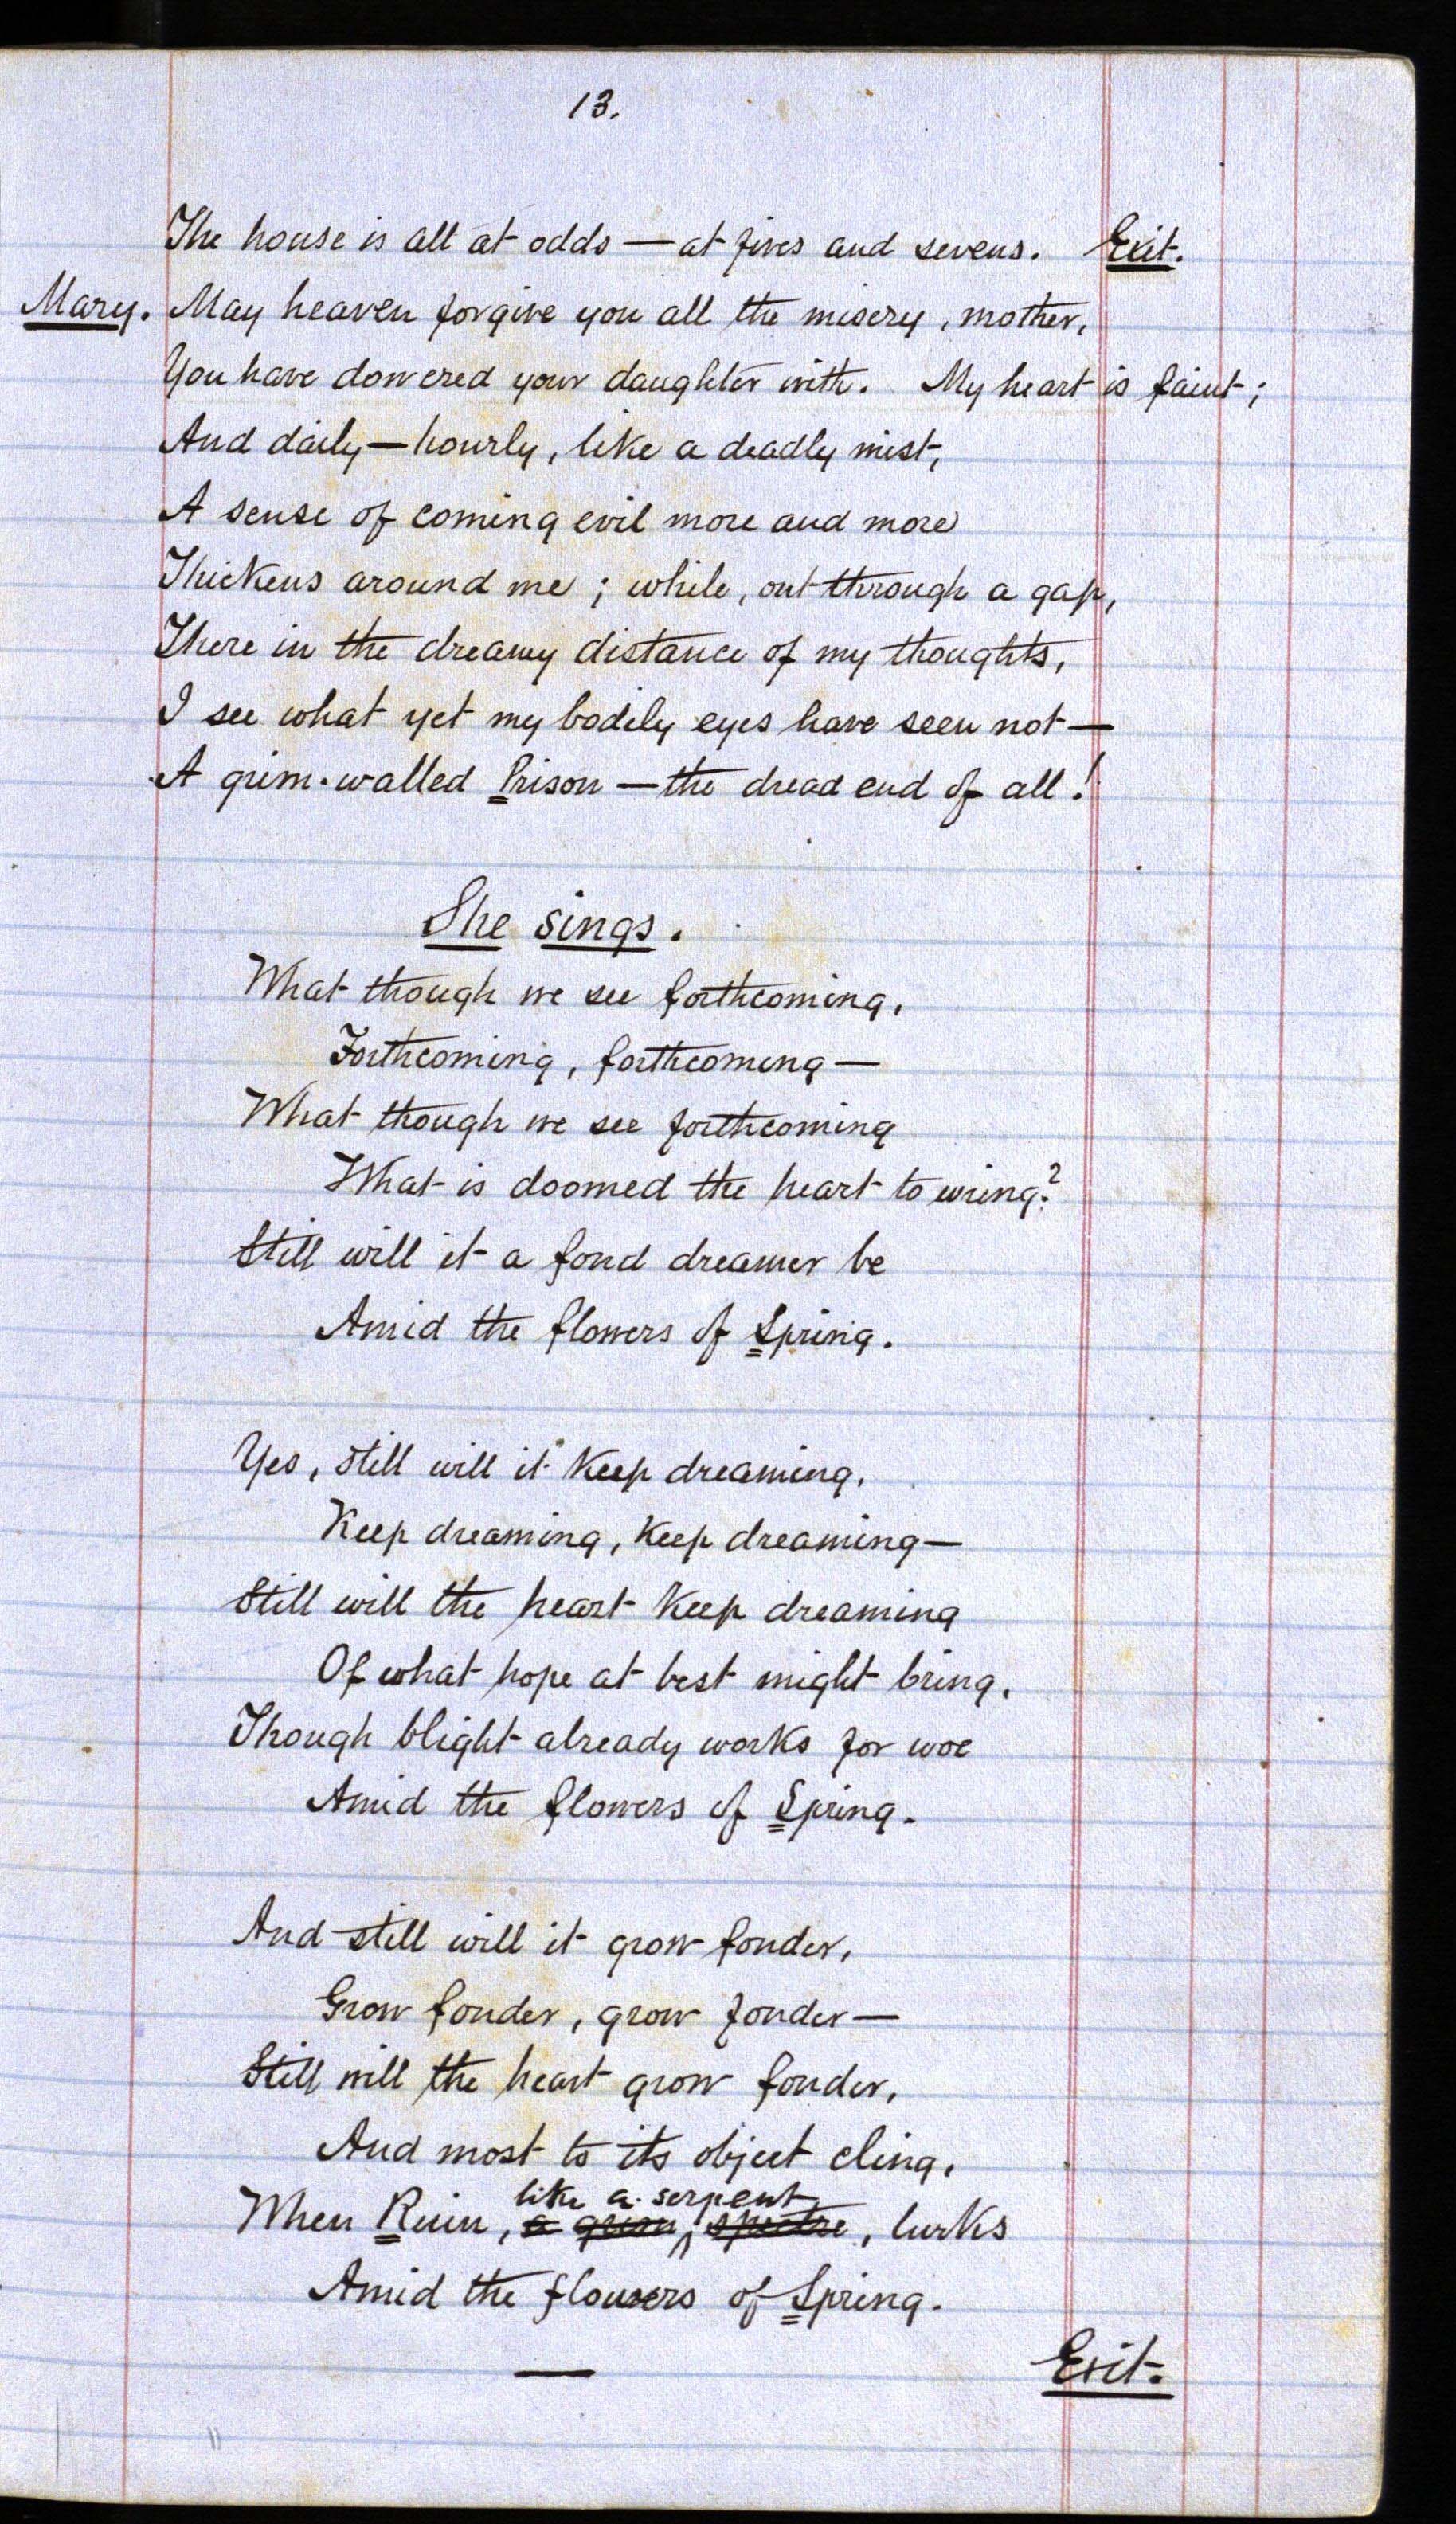 13.
The house is all at odds — at fives and sevens. Exit.
Mary. May heaven forgive you all the misery, mother,
You have dowered your daughter with. My heart is faint;
And daily — hourly, like a deadly mist,
A sense of coming evil more and more
Thickens around me; while, out through a gap,
There in the dreamy distance of my thoughts,
I see what yet my bodily eyes have seen not —
A grim-walled Prison — the dread end of all!
She sings.
What though we see forthcoming,
Forthcoming, forthcoming —
What though we see forthcoming
What is doomed the heart to wring?
Still will it a fond dreamer be
Amid the flowers of Spring.
Yes, still will it keep dreaming,
Keep dreaming, keep dreaming —
Still will the heart keep dreaming
Of what hope at best might bring,
Though blight already works for woe
Amid the flowers of Spring.
And still will it grow fonder,
Grow fonder, grow fonder —
Still will the heart grow fonder,
And most to its object cling,
like a serpent,
When Ruin, a grim spectre, lurks
Amid the flowers of Spring.
Exit.